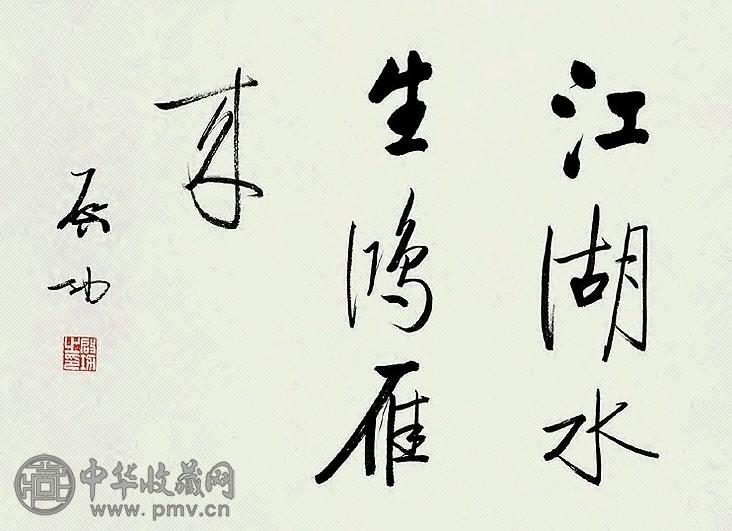 江湖水
生鴻雁
来
启功
中华收藏网
www.pmv.cn